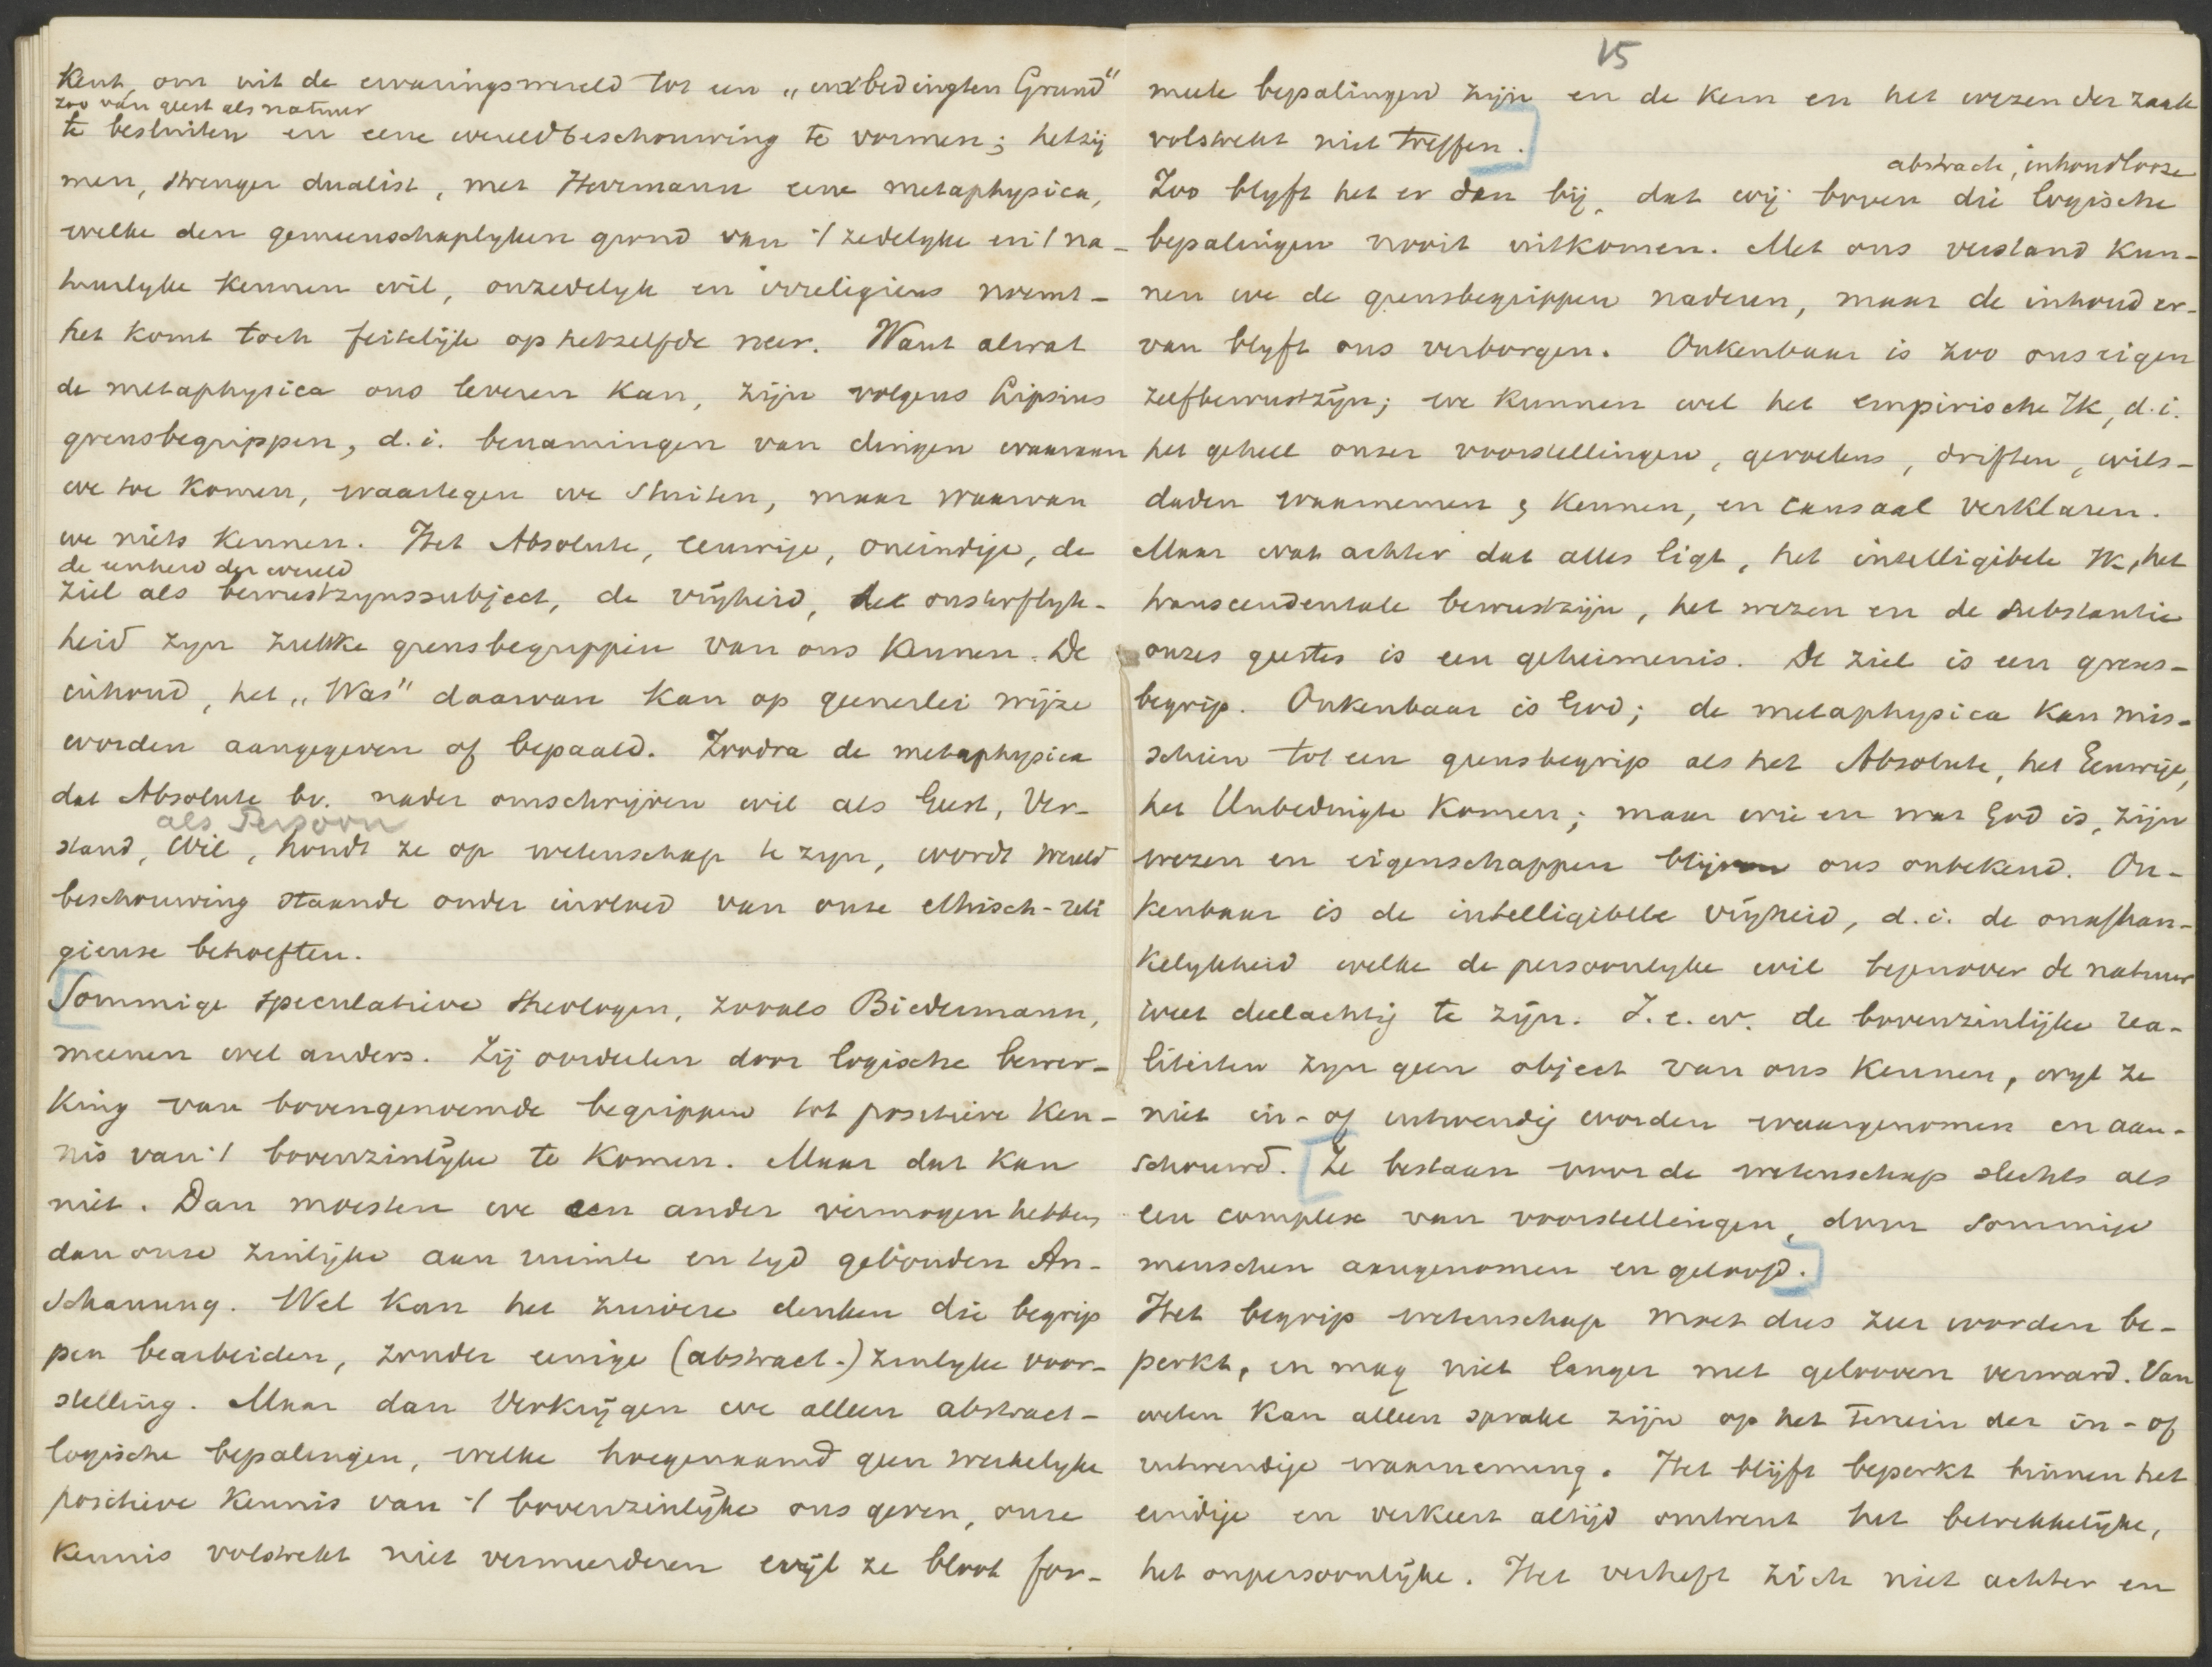 kent, om uit de ervaringswereld tot een „unbedingten Grund"
zoo van geest als natuur
te besluiten en eene wereldbeschouwing te vormen; hetzij
men, strenger dualist, met Herrmann eene metaphysica,
welke den gemeenschaplyken grond van 't zedelyke en 't na-
tuurlyke kennen wil, onzedelyk en irreligieus noemt -
het komt toch feitelijk op hetzelfde neer. Want alwat
de metaphysica ons leveren kan, zijn volgens Lipsius
grensbegrippen, d.i. benamingen van dingen waaraan
we toe komen, waartegen we stuiten, maar waarvan
we niets kennen. Het Absolute, eeuwige, oneindige, de
de eenheid der wereld
ziel als bewustzynssubject, de vrijheid, de onsterflyk-
heid zyn zulke grensbegrippen van ons kennen. De
inhoud, het „Was" daarvan kan op geenerlei wijze
worden aangegeven of bepaald. Zoodra de metaphysica
dat Absolute bv. nader omschrijven wil als Geest, Ver-
als Persoon
stand, Wil, houdt ze op wetenschap te zyn, wordt wereld
beschouwing staande onder invloed van onze ethisch-reli
gieuse behoeften.
Sommige speculatieve theologen, zooals Biedermann,
meenen wel anders. Zij oordeelen door logische bewer-
king van bovengenoemde begrippen tot positieve ken-
nis van 't bovenzinlyke te komen. Maar dat kan
niet. Dan moesten we een ander vermogen hebben,
dan onze zinlijke aan ruimte en tyd gebonden An-
schauung. Wel kan het zuivere denken die begrip
pen bearbeiden, zonder eenige (abstract-) zinlyke voor-
stelling. Maar dan verkrijgen we alleen abstract-
logische bepalingen, welke hoegenaamd geen werkelyke
positieve kennis van 't bovenzinlijke ons geven, onze
kennis volstrekt niet vermeerderen wijl ze bloot for-
15
meele bepalingen zijn en de kern en het wezen der zaak
volstrekt niet treffen.
abstracte, inhoudlooze
Zoo blyft het er dan bij, dat wij boven die logische
bepalingen nooit uitkomen. Met ons verstand kun-
nen we de grensbegrippen naderen, maar de inhoud er-
van blyft ons verborgen. Onkenbaar is zoo ons eigen
zelfbewustzijn; we kunnen wel het empirische Ik, d.i.
het geheel onzer voorstellingen, gevoelens, driften, wils-
daden waarnemen & kennen, en causaal verklaren.
Maar wat achter dat alles ligt, het intelligibele Ik, het
transcendentale bewustzijn, het wezen en de substantie
onzes geestes is een geheimenis. De ziel is een grens-
begrip. Onkenbaar is God; de metaphysica kan mis-
schien tot een grensbegrip als het Absolute, het Eeuwige,
het Unbedingte komen; maar wie en wat God is, zijn
wezen en eigenschappen blijven ons onbekend. On-
kenbaar is de intelligibele vrijheid, d.i. de onafhan-
kelykheid welke de persoonlyke wil tegenover de natuur
weet deelachtig te zijn. I.e.w. de bovenzinlijke rea-
liteiten zyn geen object van ons kennen, wyl ze
niet in- of uitwendig worden waargenomen en aan-
schouwd. Ze bestaan voor de wetenschap slechts als
een complex van voorstellingen, door sommige
menschen aangenomen en geloofd.
Het begrip wetenschap moet dus zeer worden be-
perkt, en mag niet langer met gelooven verward. Van
weten kan alleen sprake zijn op het terrein der in- of
uitwendige waarneming. Het blijft beperkt binnen het
eindige en verkeert altijd omtrent het betrekkelijke,
het onpersoonlijke. Het verheft zich niet achter en